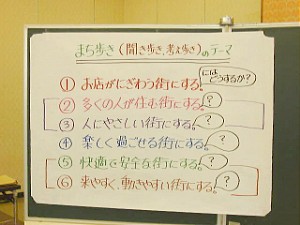 まち歩き(聞き歩き、考え歩き)のテーマ
① お店がにぎわう街にする。にはどうするか?
② 多くの人が住む街にする。?
③ 人にやさしい街にする。?
④ 楽しく過ごせる街にする。?
⑤ 快適で安全な街にする。?
⑥ 来やすく、動きやすい街にする。?